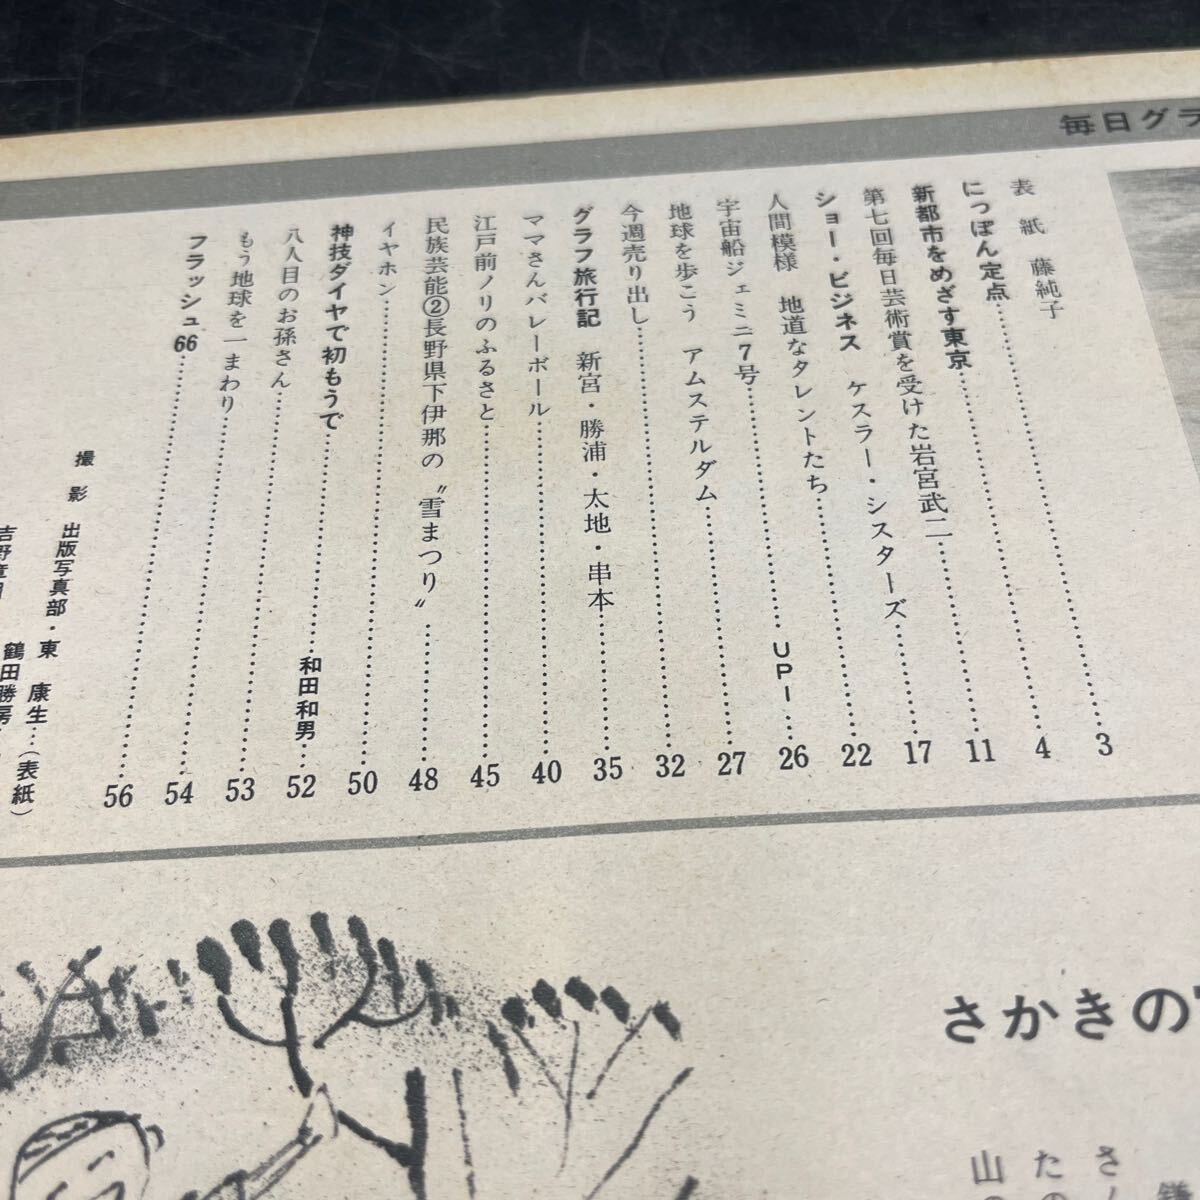 毎日グラ
表紙 藤純子
にっぽん定点……3
新都市をめざす東京……4
第七回毎日芸術賞を受けた岩宮武二……11
ショー・ビジネス ケスラー・シスターズ……17
人間模様 地道なタレントたち……22
宇宙船ジェミニ7号……UPI……26
地球を歩こう アムステルダム……27
今週売り出し……32
グラフ旅行記 新宮・勝浦・太地・串本……35
ママさんバレーボール……40
江戸前ノリのふるさと……45
民族芸能②長野県下伊那の〝雪まつり〟……48
イヤホン……50
神技ダイヤで初もうで……和田和男……52
八人目のお孫さん……53
もう地球を一まわり……54
フラッシュ66……56
撮影 出版写真部・東 康生…（表紙）
鶴田勝房
さかきの
さ
たの
山